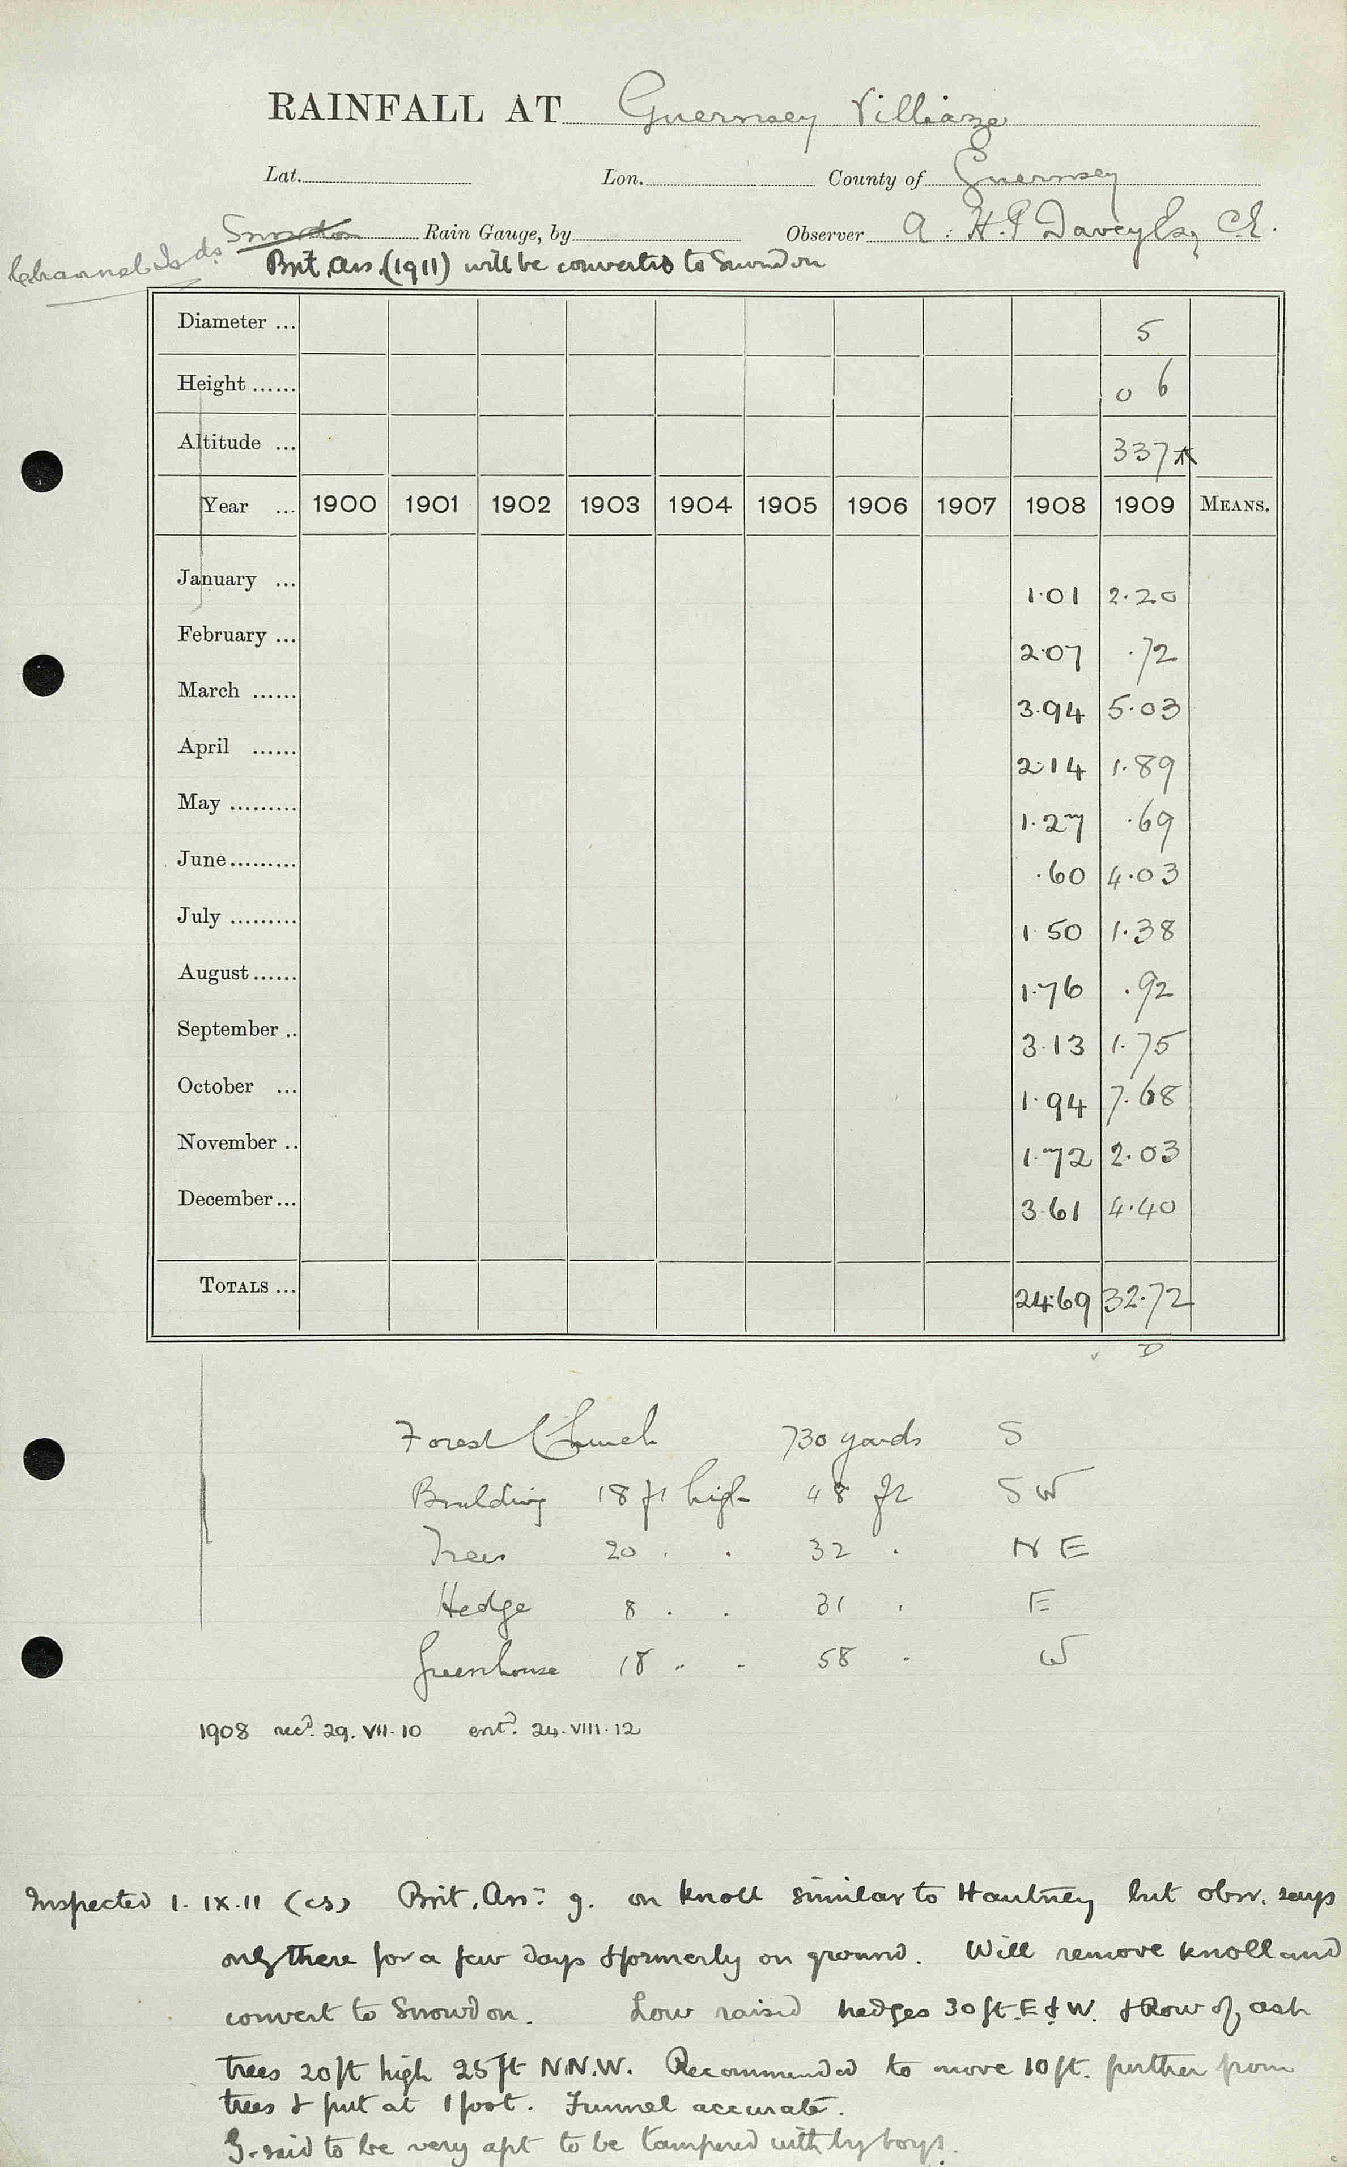 RAINFALL AT Guernsey Villiaze
Lat. Lon. County of Guernsey
Channel Isds Snowdon Rain Gauge, by Observer A. H. P Davey Esq C.E.
Brit. Ass. (1911) will be converted to Snowdon
Diameter ... 5
Height ...... 0 6
Altitude ... 337
Year ... 1900 1901 1902 1903 1904 1905 1906 1907 1908 1909 MEANS.
January ... 1.01 2.20
February ... 2.07 .72
March ...... 3.94 5.03
April ...... 2.14 1.89
May ......... 1.27 .69
June ......... .60 4.03
July ......... 1.50 1.38
August ...... 1.76 .92
September .. 3.13 1.75
October ... 1.94 7.68
November .. 1.72 2.03
December ... 3.61 4.40
TOTALS ... 24.69 32.72
D
Forest Church 730 yards S
Building 18 ft high 48 ft SW
Trees 20 . . 32 . NE
Hedge 8 . . 31 . E
Greenhouse 18 . . 58 . W
1908 recd. 29.VII.10 entd. 24.VIII.12
Inspected 1.IX.11 (CS) Brit. Assn. g. on knoll similar to Hautney but obsr. says
only there for a few days & formerly on ground. Will remove knoll and
convert to Snowdon. Low raised hedges 30 ft. E & W. & Row of ash
trees 20 ft high 25 ft N.N.W. Recommended to move 10 ft. further from
trees & put at 1 foot. Funnel accurate.
G. said to be very apt to be tampered with by boys.